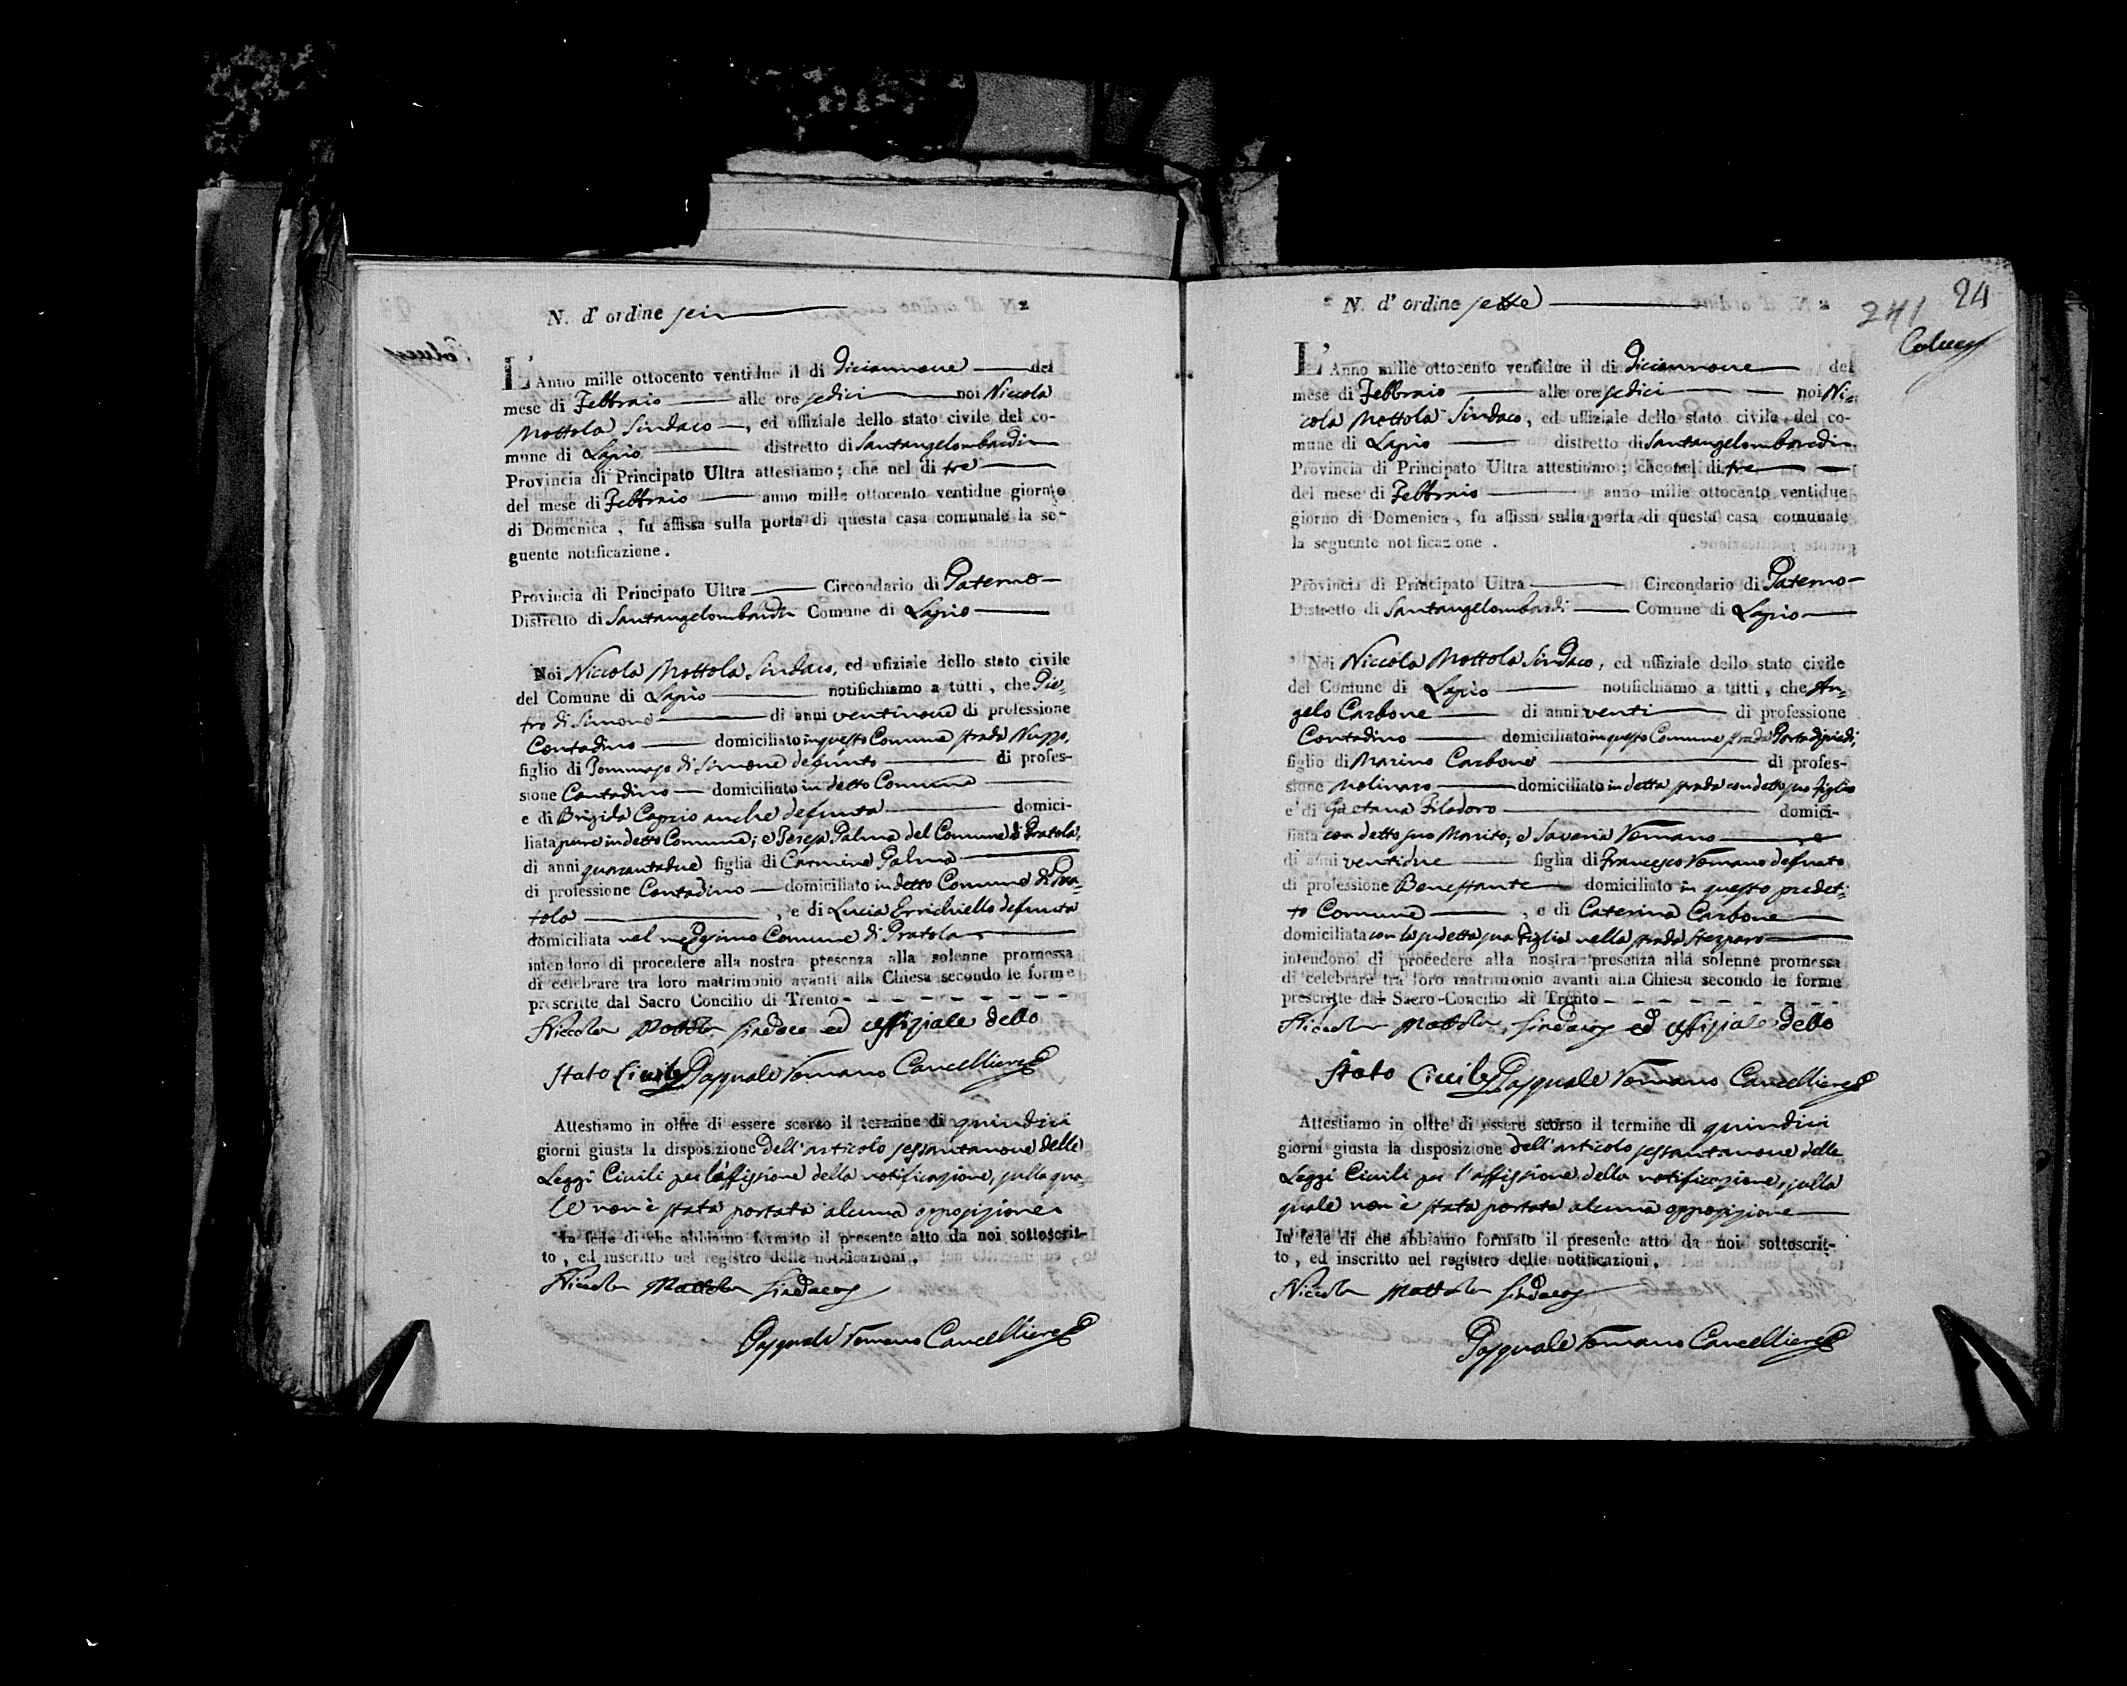 N. d' ordine sei
L' Anno mille ottocento ventidue il di Diciannove del
mese di Febbraio alle ore sedici noi Niccola
Mottola Sindaco, ed uffiziale dello stato civile del co-
mune di Lapio distretto di Santangelombardi
Provincia di Principato Ultra attestiamo; che nel di tre
del mese di Febbraio anno mille ottocento ventidue giorno
di Domenica, fu affissa sulla porta di questa casa comunale la se-
guente notificazione.
Provincia di Principato Ultra Circondario di Paterno
Distretto di Santangelombardi Comune di Lapio
Noi Niccola Mottola Sindaco, ed ufiziale dello stato civile
del Comune di Lapio notifichiamo a tutti, che Pie-
tro di Simone di anni ventinove di professione
Contadino domiciliato in questo Comune strada Nuzzo,
figlio di Tommaso di Simone defunto di profes-
sione Contadino domiciliato in detto Comune
e di Brigida Caprio anche defunta domici-
liata pure in detto Comune; e Teresa Palma del Comune di Pratola,
di anni quarantadue figlia di Carmine Palma
di professione Contadino domiciliato in detto Comune di Pra-
tola, e di Lucia Errichiello defunta
domiciliata nel medesimo Comune di Pratola
intendono di procedere alla nostra presenza alla solenne promessa
di celebrare tra loro matrimonio avanti alla Chiesa secondo le forme
prescritte dal Sacro Concilio di Trento - - - - - - - -
Niccola Mottola Sindaco ed uffiziale dello
Stato Civile Pasquale Romano Cancelliere
Attestiamo in oltre di essere scorso il termine di quindici
giorni giusta la disposizione dell'articolo sessantanove delle
Leggi Civili per l'affissione della notificazione, sulla qua-
le non è stata portata alcuna opposizione
In fede di che abbiamo formato il presente atto da noi sottoscrit-
to, ed inscritto nel registro delle notificazioni.
Niccola Mottola Sindaco
Pasquale Romano Cancelliere
24
241
N. d' ordine sette
L' Anno mille ottocento ventidue il di Diciannove del
mese di Febbraio alle ore sedici noi Nic-
cola Mottola Sindaco, ed uffiziale dello stato civile del co-
mune di Lapio distretto di Santangelombardi
Provincia di Principato Ultra attestiamo; che nel di tre
del mese di Febbraio anno mille ottocento ventidue
giorno di Domenica, fu affissa sulla porta di questa casa comunale
la seguente notificazione.
Provincia di Principato Ultra Circondario di Paterno
Distretto di Santangelombardi Comune di Lapio
Noi Niccola Mottola Sindaco, ed uffiziale dello stato civile
del Comune di Lapio notifichiamo a tutti, che An-
gelo Carbone di anni venti di professione
Contadino domiciliato in questo Comune strada
figlio di Marino Carbone di profes-
sione Molinaro domiciliato in detta strada con detto suo figlio
e di Gaetana Filadoro domici-
liata con detto suo Marito; e Saveria Romano
di anni ventidue figlia di Francesco Romano defunto
di professione Benestante domiciliato in questo predet-
to Comune, e di Caterina Carbone
domiciliata con la sudetta sua figlia nella strada
intendono di procedere alla nostra presenza alla solenne promessa
di celebrare tra loro matrimonio avanti alla Chiesa secondo le forme
prescritte dal Sacro Concilio di Trento - - - - - - - -
Niccola Mottola Sindaco ed uffiziale dello
Stato Civile Pasquale Romano Cancelliere
Attestiamo in oltre di essere scorso il termine di quindici
giorni giusta la disposizione dell'articolo sessantanove delle
Leggi Civili per l'affissione della notificazione, sulla
quale non è stata portata alcuna opposizione
In fede di che abbiamo formato il presente atto da noi sottoscrit-
to, ed inscritto nel registro delle notificazioni.
Niccola Mottola Sindaco
Pasquale Romano Cancelliere